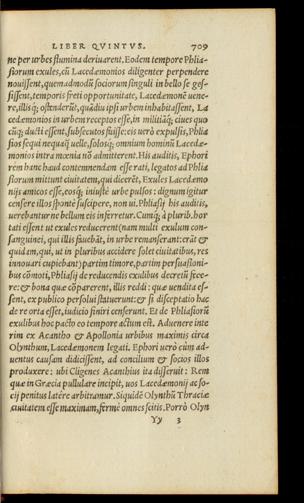 LIBER QVINTVS. 709
ne per urbes flumina deriuarent. Eodem tempore Phlia-
siorum exules, cū Lacedæmonios diligenter perpendere
nouissent, quemadmodū sociorum singuli in bello se ges-
sissent, temporis freti opportunitate, Lacedæmonē uene-
re, illisq́; ostenderūt, quādiu ipsi urbem inhabitassent, La
cedæmonios in urbem receptos esse, in militiāq́; ciues quo
cūq; ducti essent, subsecutos fuisse: eis uerò expulsis, Phlia
sios sequi nequaq̄ uelle, solosq́; omnium hominū Lacedæ-
monios intra mœnia nō admitterent. His auditis, Ephori
rem hanc haud contemnendam esse rati, legatos ad Phlia
siorum mittunt ciuitatem, qui dicerēt, Exules Lacedæmo
nijs amicos esse, eosq́; iniustè urbe pulsos: dignum igitur
censere illos spontè suscipere, non ui. Phliasij his auditis,
uerebantur ne bellum eis inferretur. Cumq́; à plurib. hor
tati essent ut exules reducerent (nam multi exulum con-
sanguinei, qui illis fauebāt, in urbe remanserant: erāt &
quidam, qui, ut in pluribus accidere solet ciuitatibus, res
innouari cupiebant) partim timore, partim persuasioni-
bus cōmoti, Phliasij de reducendis exulibus decretū fece-
re: & bona quæ cōparerent, illis reddi: quæ uendita es-
sent, ex publico persolui statuerunt: & si disceptatio hac
de re orta esset, iudicio finiri censerunt. Et de Phliasiorū
exulibus hoc pacto eo tempore actum est. Aduenere inte
rim ex Acantho & Apollonia urbibus maximis circa
Olynthum, Lacedæmonem legati. Ephori uerò cùm ad-
uentus causam didicissent, ad concilium & socios illos
produxere: ubi Cligenes Acanthius ita disseruit: Rem
quæ in Græcia pullulare incipit, uos Lacedæmonij ac so-
cij penitus latêre arbitramur. Siquidē Olynthū Thraciæ
ciuitatem esse maximam, fermè omnes scitis. Porrò Olyn
Yy 3